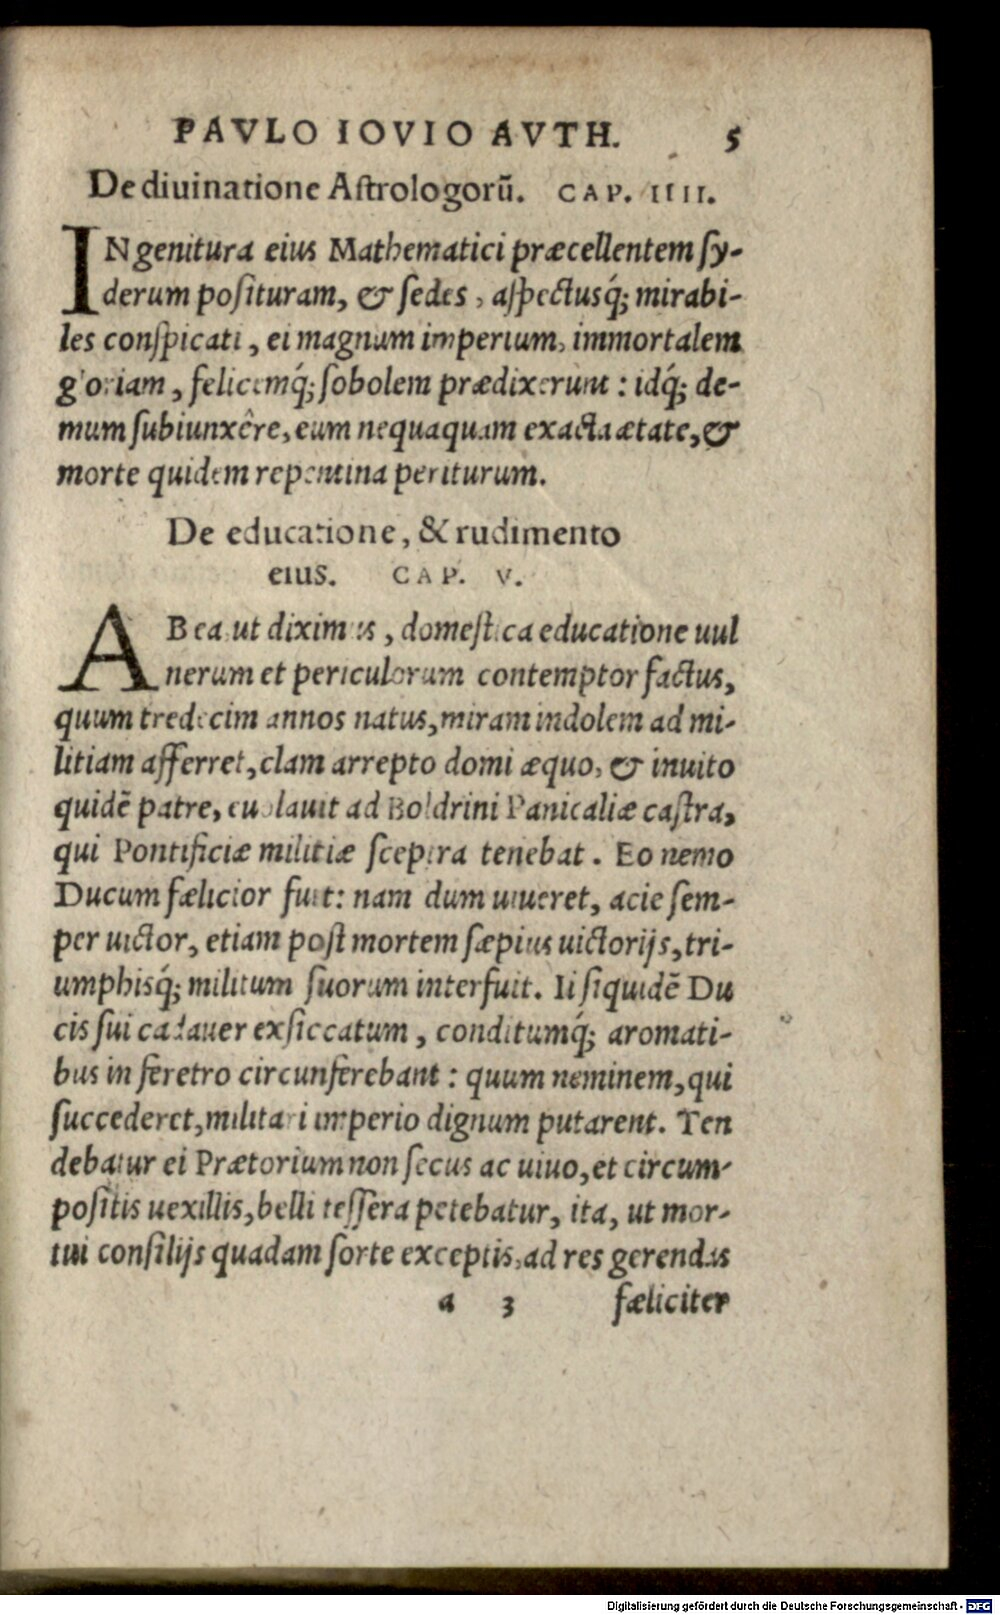 PAVLO IOVIO AVTH. 5
De diuinatione Astrologorū. CAP. IIII.
IN genitura eius Mathematici præcellentem sy-
derum posituram, & sedes, aspectusq́; mirabi-
les conspicati, ei magnum imperium, immortalem
gloriam, felicemq́; sobolem prædixerunt: idq́; de-
mum subiunxêre, eum nequaquam exacta ætate, &
morte quidem repentina periturum.
De educatione, & rudimento
eius. CAP. V.
AB ea ut diximus, domestica educatione uul
nerum et periculorum contemptor factus,
quum tredecim annos natus, miram indolem ad mi-
litiam afferret, clam arrepto domi æquo, & inuito
quidē patre, euolauit ad Boldrini Panicaliæ castra,
qui Pontificiæ militiæ sceptra tenebat. Eo nemo
Ducum fælicior fuit: nam dum uiueret, acie sem-
per uictor, etiam post mortem sæpius uictorijs, tri-
umphisq́; militum suorum interfuit. Ii siquidē Du
cis sui cadauer exsiccatum, conditumq́; aromati-
bus in feretro circunferebant: quum neminem, qui
succederet, militari imperio dignum putarent. Ten
debatur ei Prætorium non secus ac uiuo, et circum-
positis uexillis, belli tessera petebatur, ita, ut mor-
tui consilijs quadam sorte exceptis, ad res gerendas
a 3 fæliciter
Digitalisierung gefördert durch die Deutsche Forschungsgemeinschaft - DFG